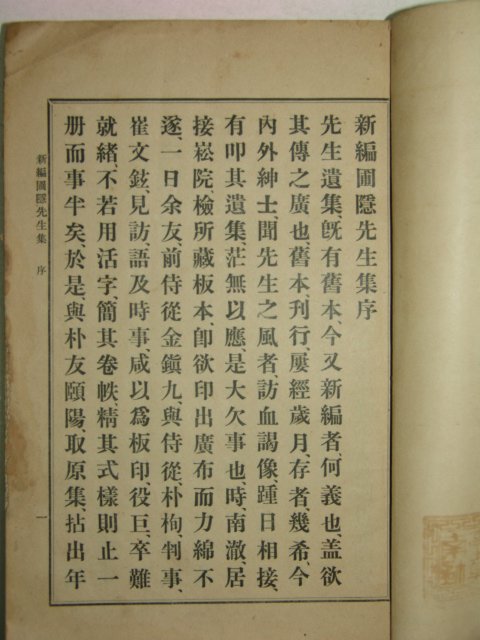 新編圃隱先生集序
先生遺集、旣有舊本、今又新編者、何義也、盖欲
其傳之廣也、舊本、刊行、屢經歲月、存者、幾希、今
內外紳士、聞先生之風者、訪血謁像、踵日相接、
有叩其遺集、茫無以應、是大欠事也、時、南澈、居
接崧院、檢所藏板本、卽欲印出廣布而力綿不
遂、一日余友、前侍從金鎭九、與侍從朴枸、判事、
崔文鉉、見訪、語及時事咸以爲板印、役巨、卒難
就緖、不若用活字、簡其卷帙、精其式樣則止一
册而事半矣、於是、與朴友頤陽、取原集、拈出年
新編圃隱先生集　序
一